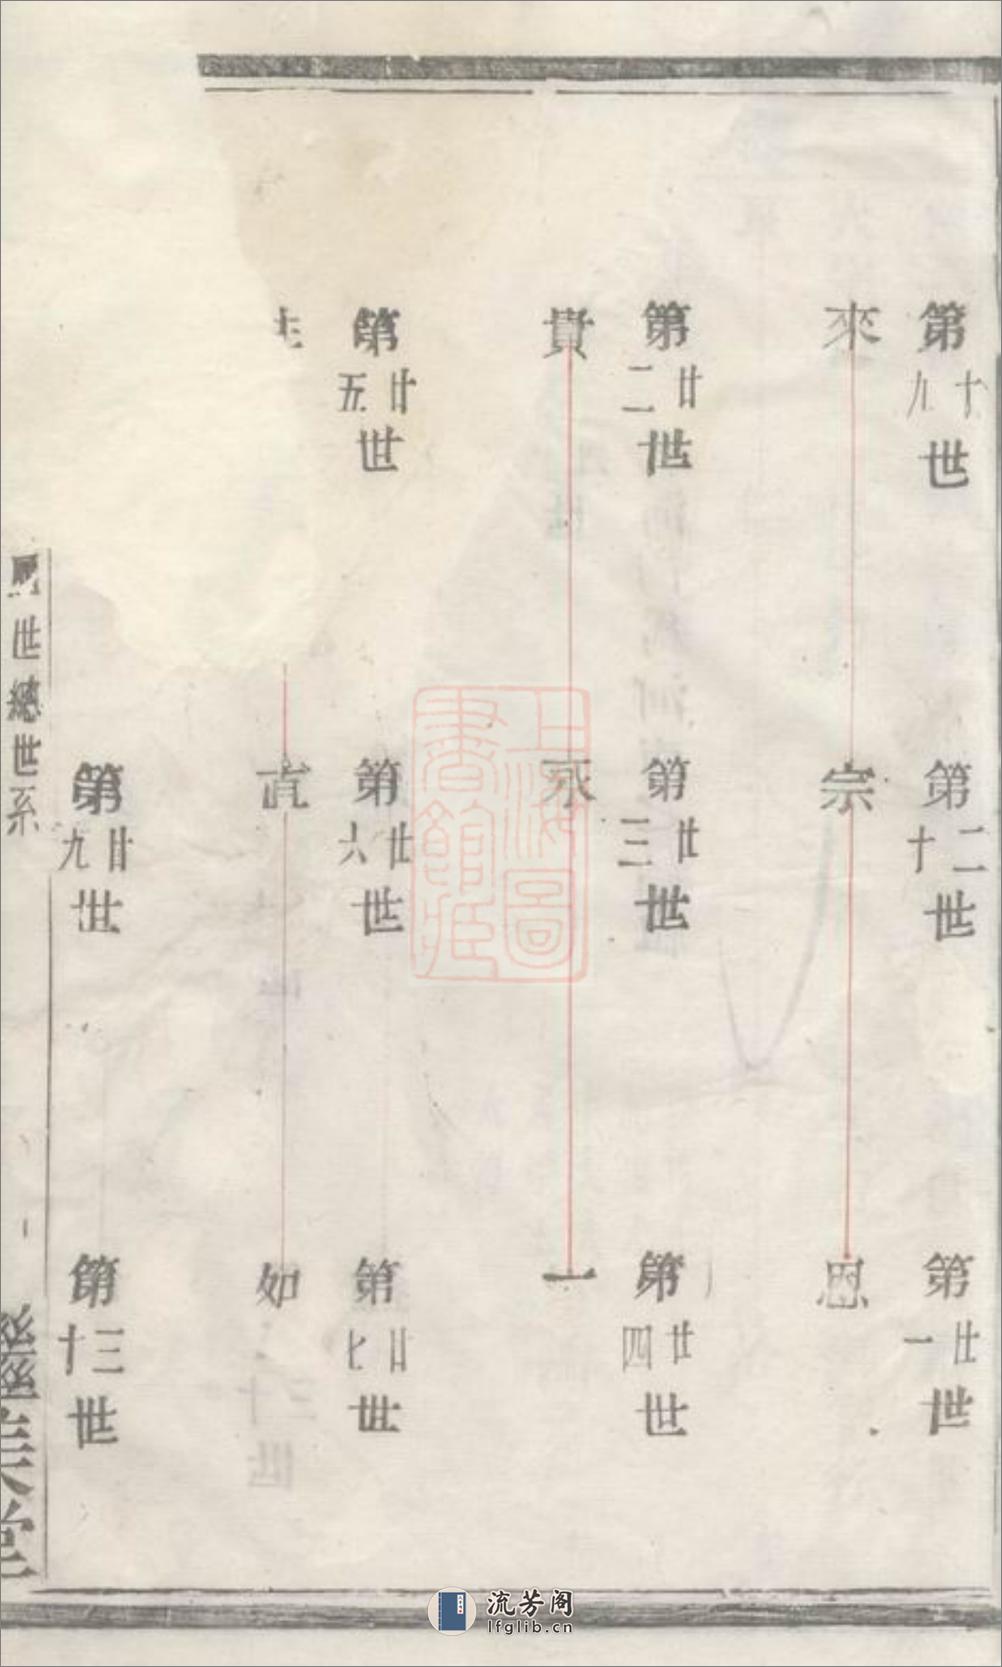 第十九世
來
第二十世
宗
第廿一世
恩
第廿二世
貴
第廿三世
永
第廿四世
一
第廿五世
第廿六世
真
第廿七世
如
第廿九世
第三十世
世總世系
堂
上海圖書館藏
流芳阁
lfglib.cn